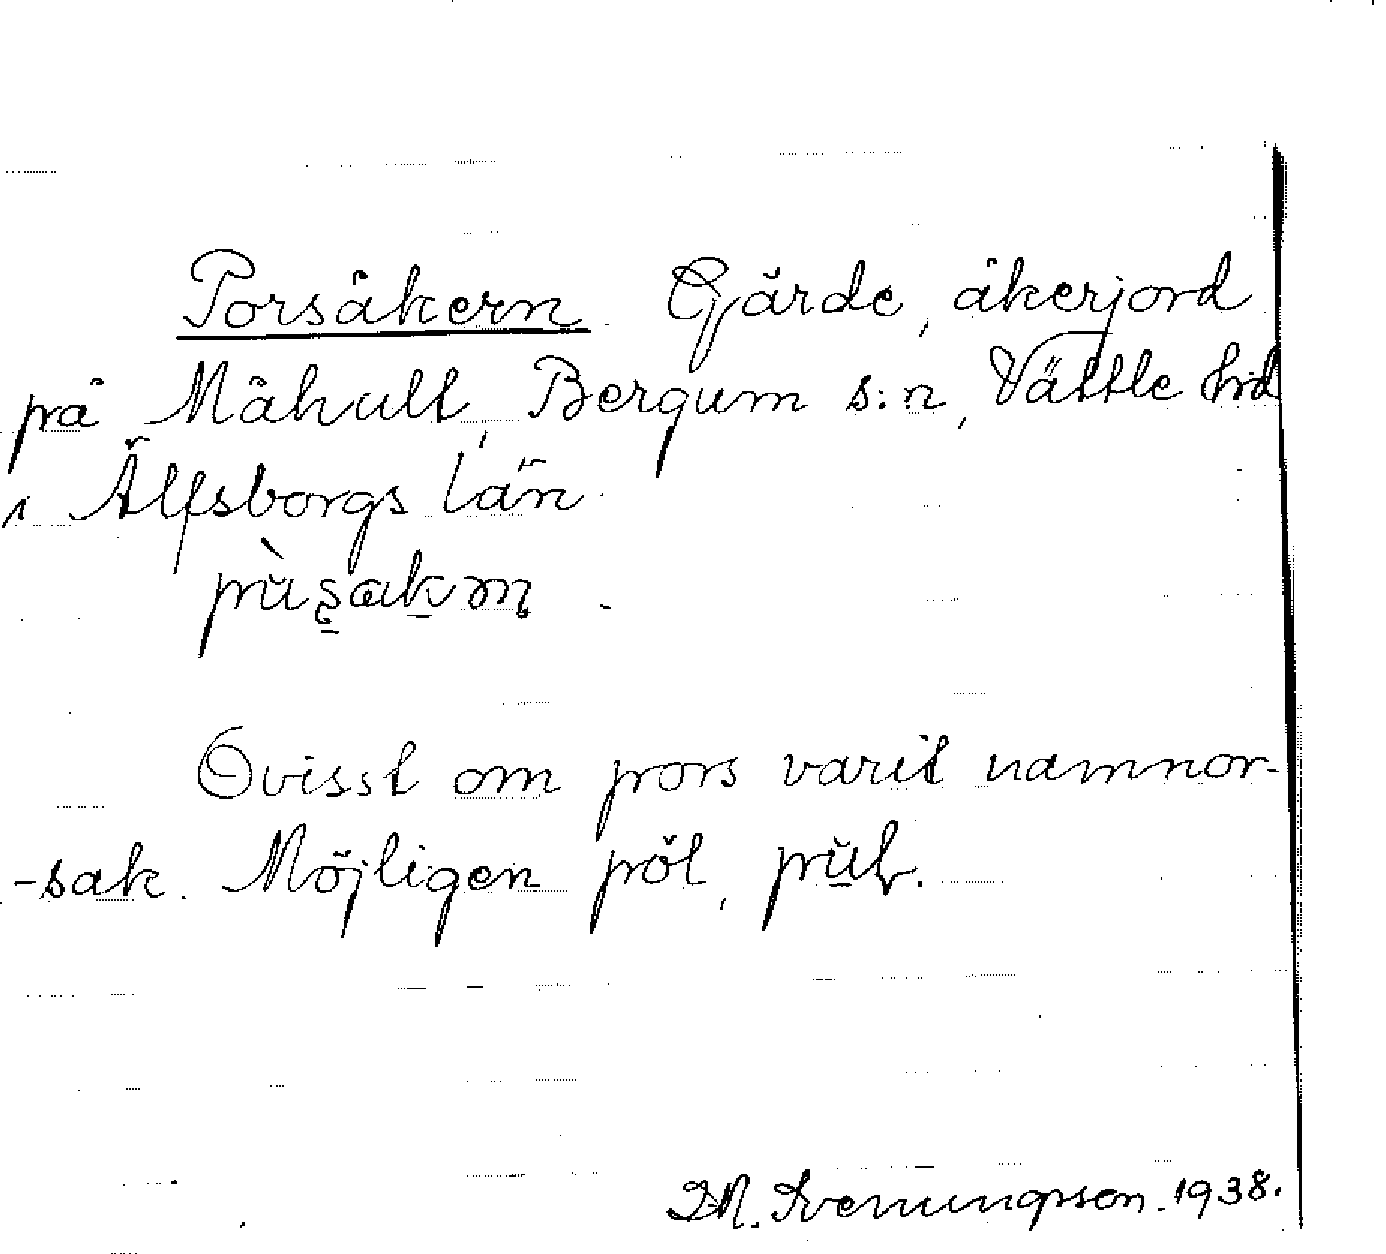 Porsåkern Gärde, åkerjord
på Måhult, Bergum s:n, Vättle hd
i Älfsborgs län.
Ovisst om pors varit namnor-
-sak. Möjligen pöl,
Svenungsson. 1938.